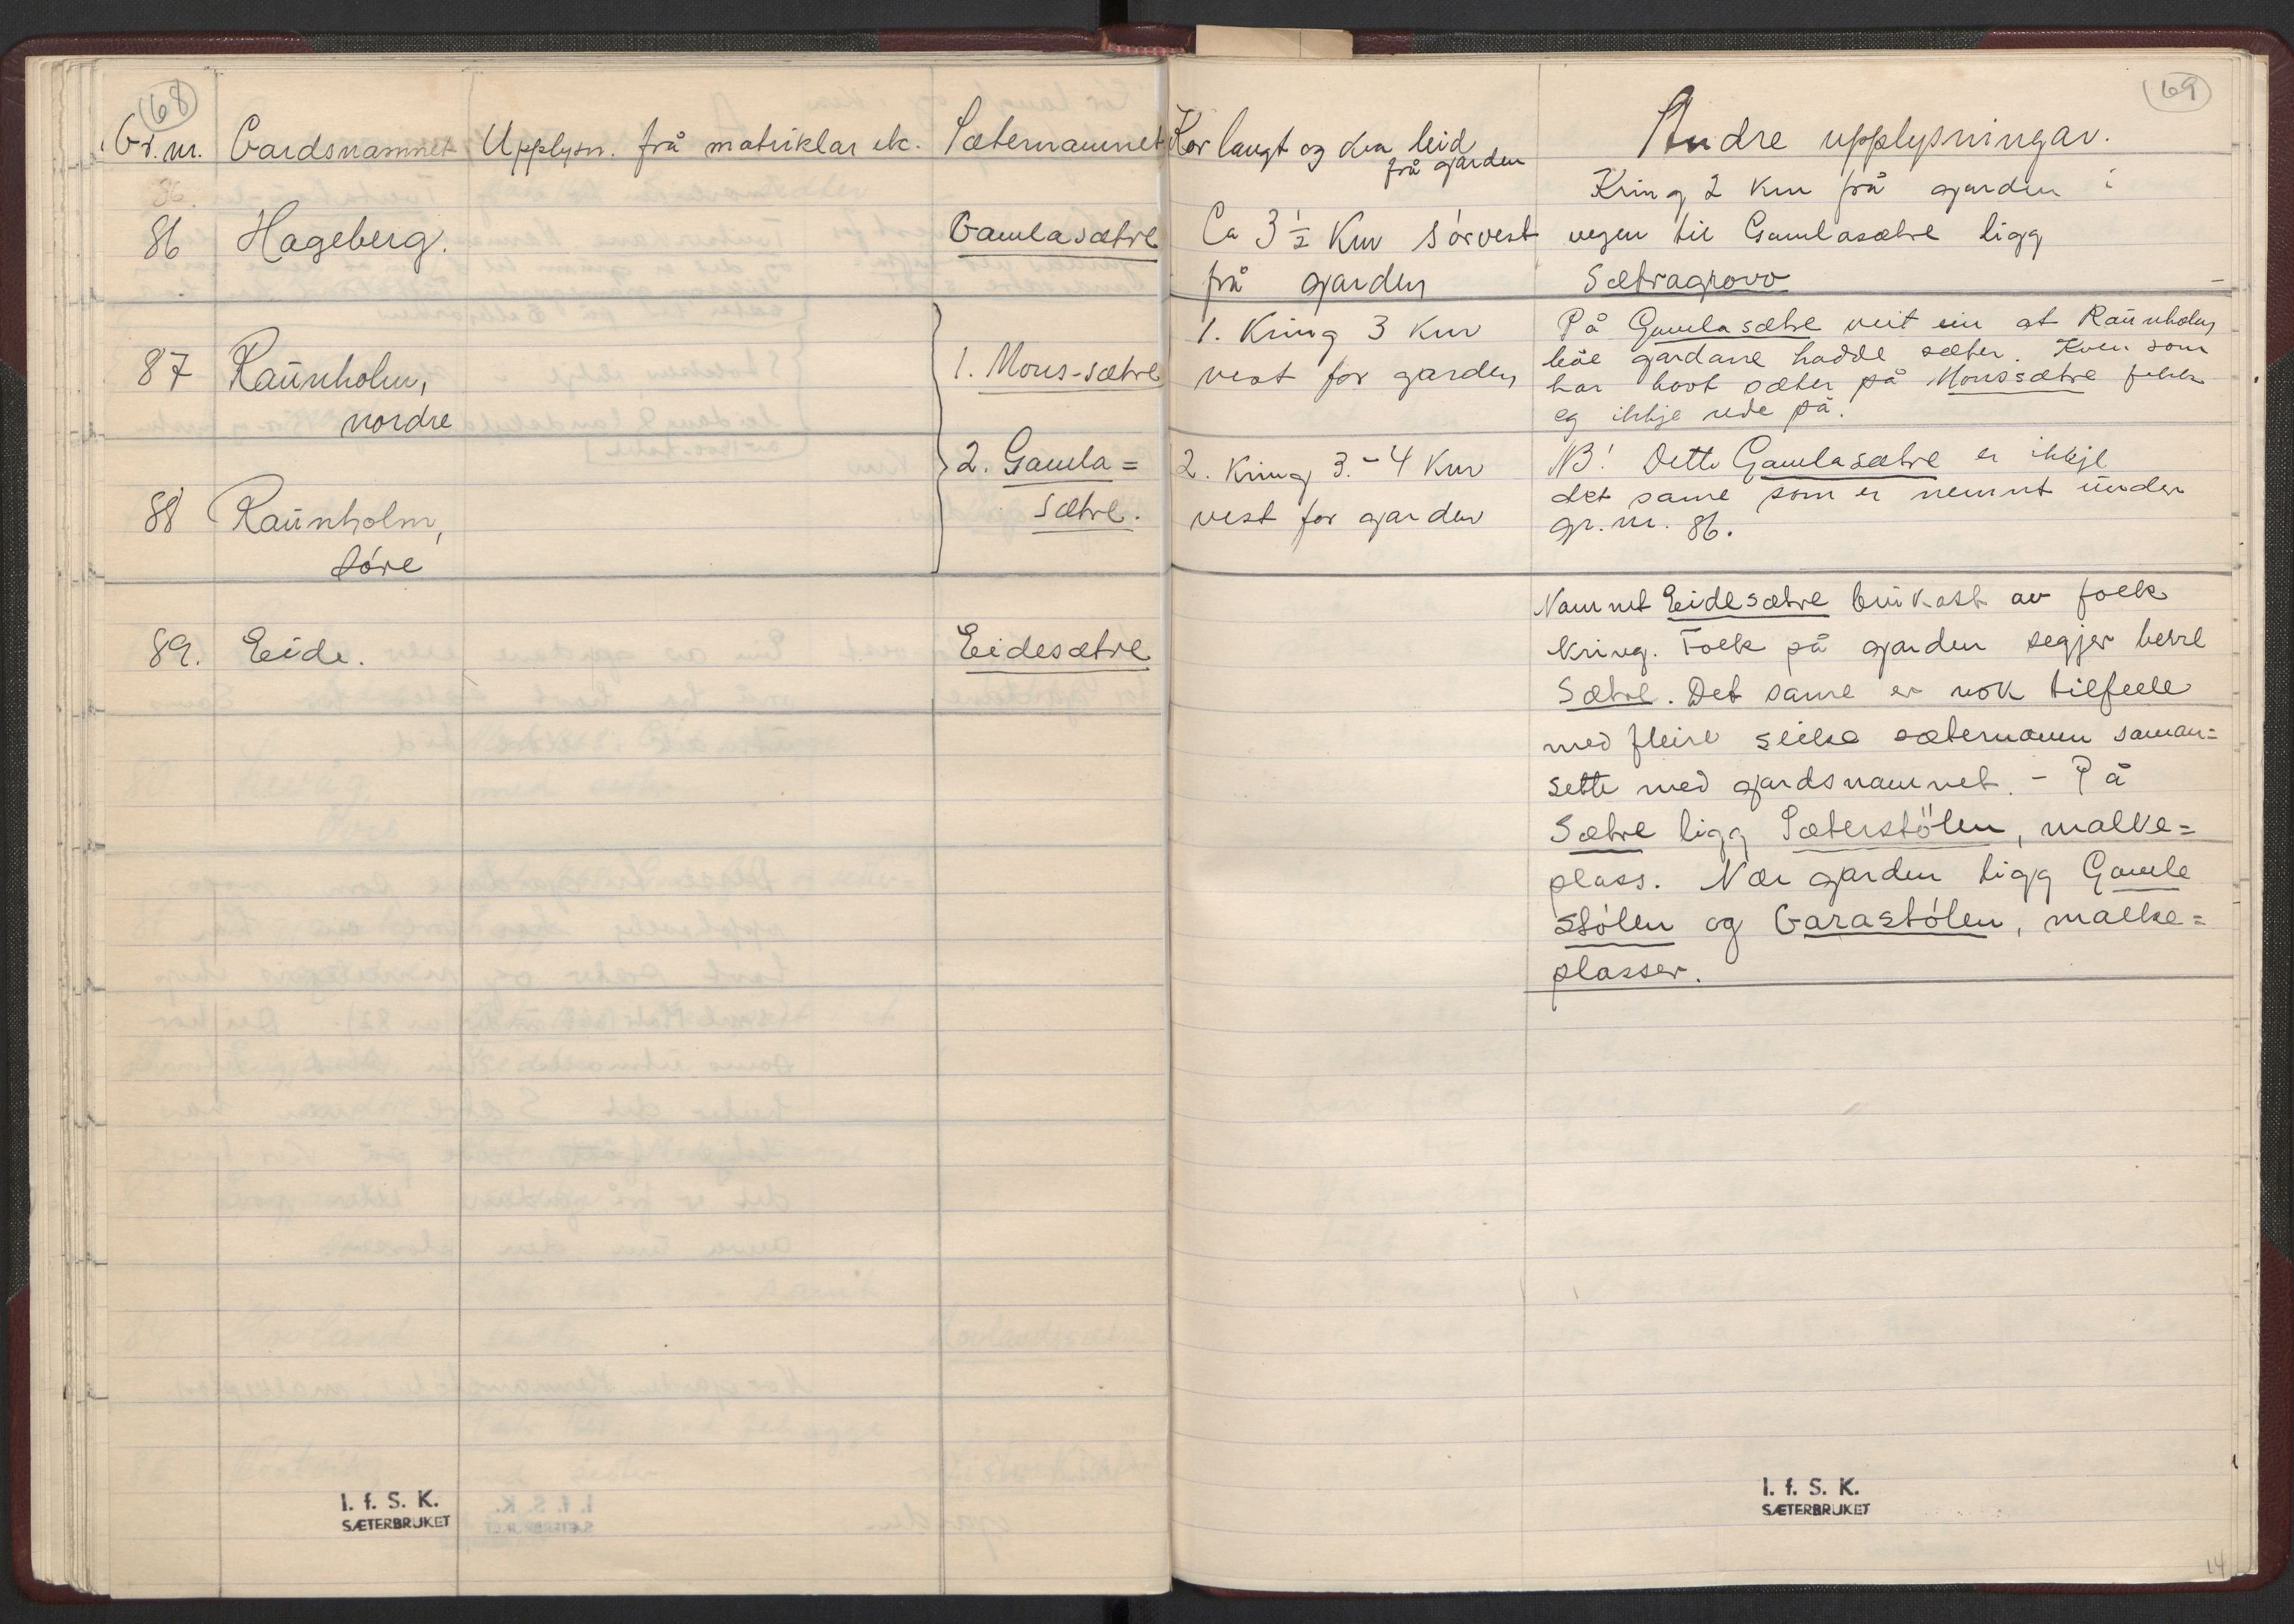 68
Gr. nr. Gardsnamnet Upplysn. frå matriklar etc. Sæternamnet
86 Hageberg. Gamlasætre
87 Raunholm, 1. Mons-sætre
nordre
2. Gamla=
88 Raunholm, sætre.
søre
89. Eide. Eidesætre
I. f. S. K.
SÆTERBRUKET
69
Kor langt og kva leid Andre upplysningar.
frå garden
Kring 2 km frå garden i
Ca 3 1/2 Km sørvest vegen til Gamlasætre ligg
frå garden Sætragrovo
1. Kring 3 Km På Gamlasætre veit ein at Raunholm
vest for garden båe gardane hadde sæter. Kven som
har havt sæter på Monssætre fekk
eg ikkje rede på.
2. Kring 3.-4 Km NB! Dette Gamlasætre er ikkje
vest for garden det same som er nemnt under
gr. nr. 86.
Namnet Eidesætre brukast av folk
kring. Folk på garden segjer berre
Sætre. Det same er nok tilfelle
med fleire slike sæternamn saman=
sette med gardsnamnet. - På
Sætre ligg Sæterstølen, malke=
plass. Nær garden ligg Gamle
stølen og Garastølen, malke=
plasser.
I. f. S. K.
SÆTERBRUKET
14